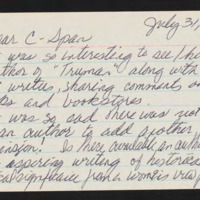 July 31,
ear C-Span
was so interesting to see
thor of "Truman" along with
writers, sharing comments o
es and bookstores.
was so sad there was not
an author to add another
ension! Is there
aspiring writing of historical
cal significance from a woman's view